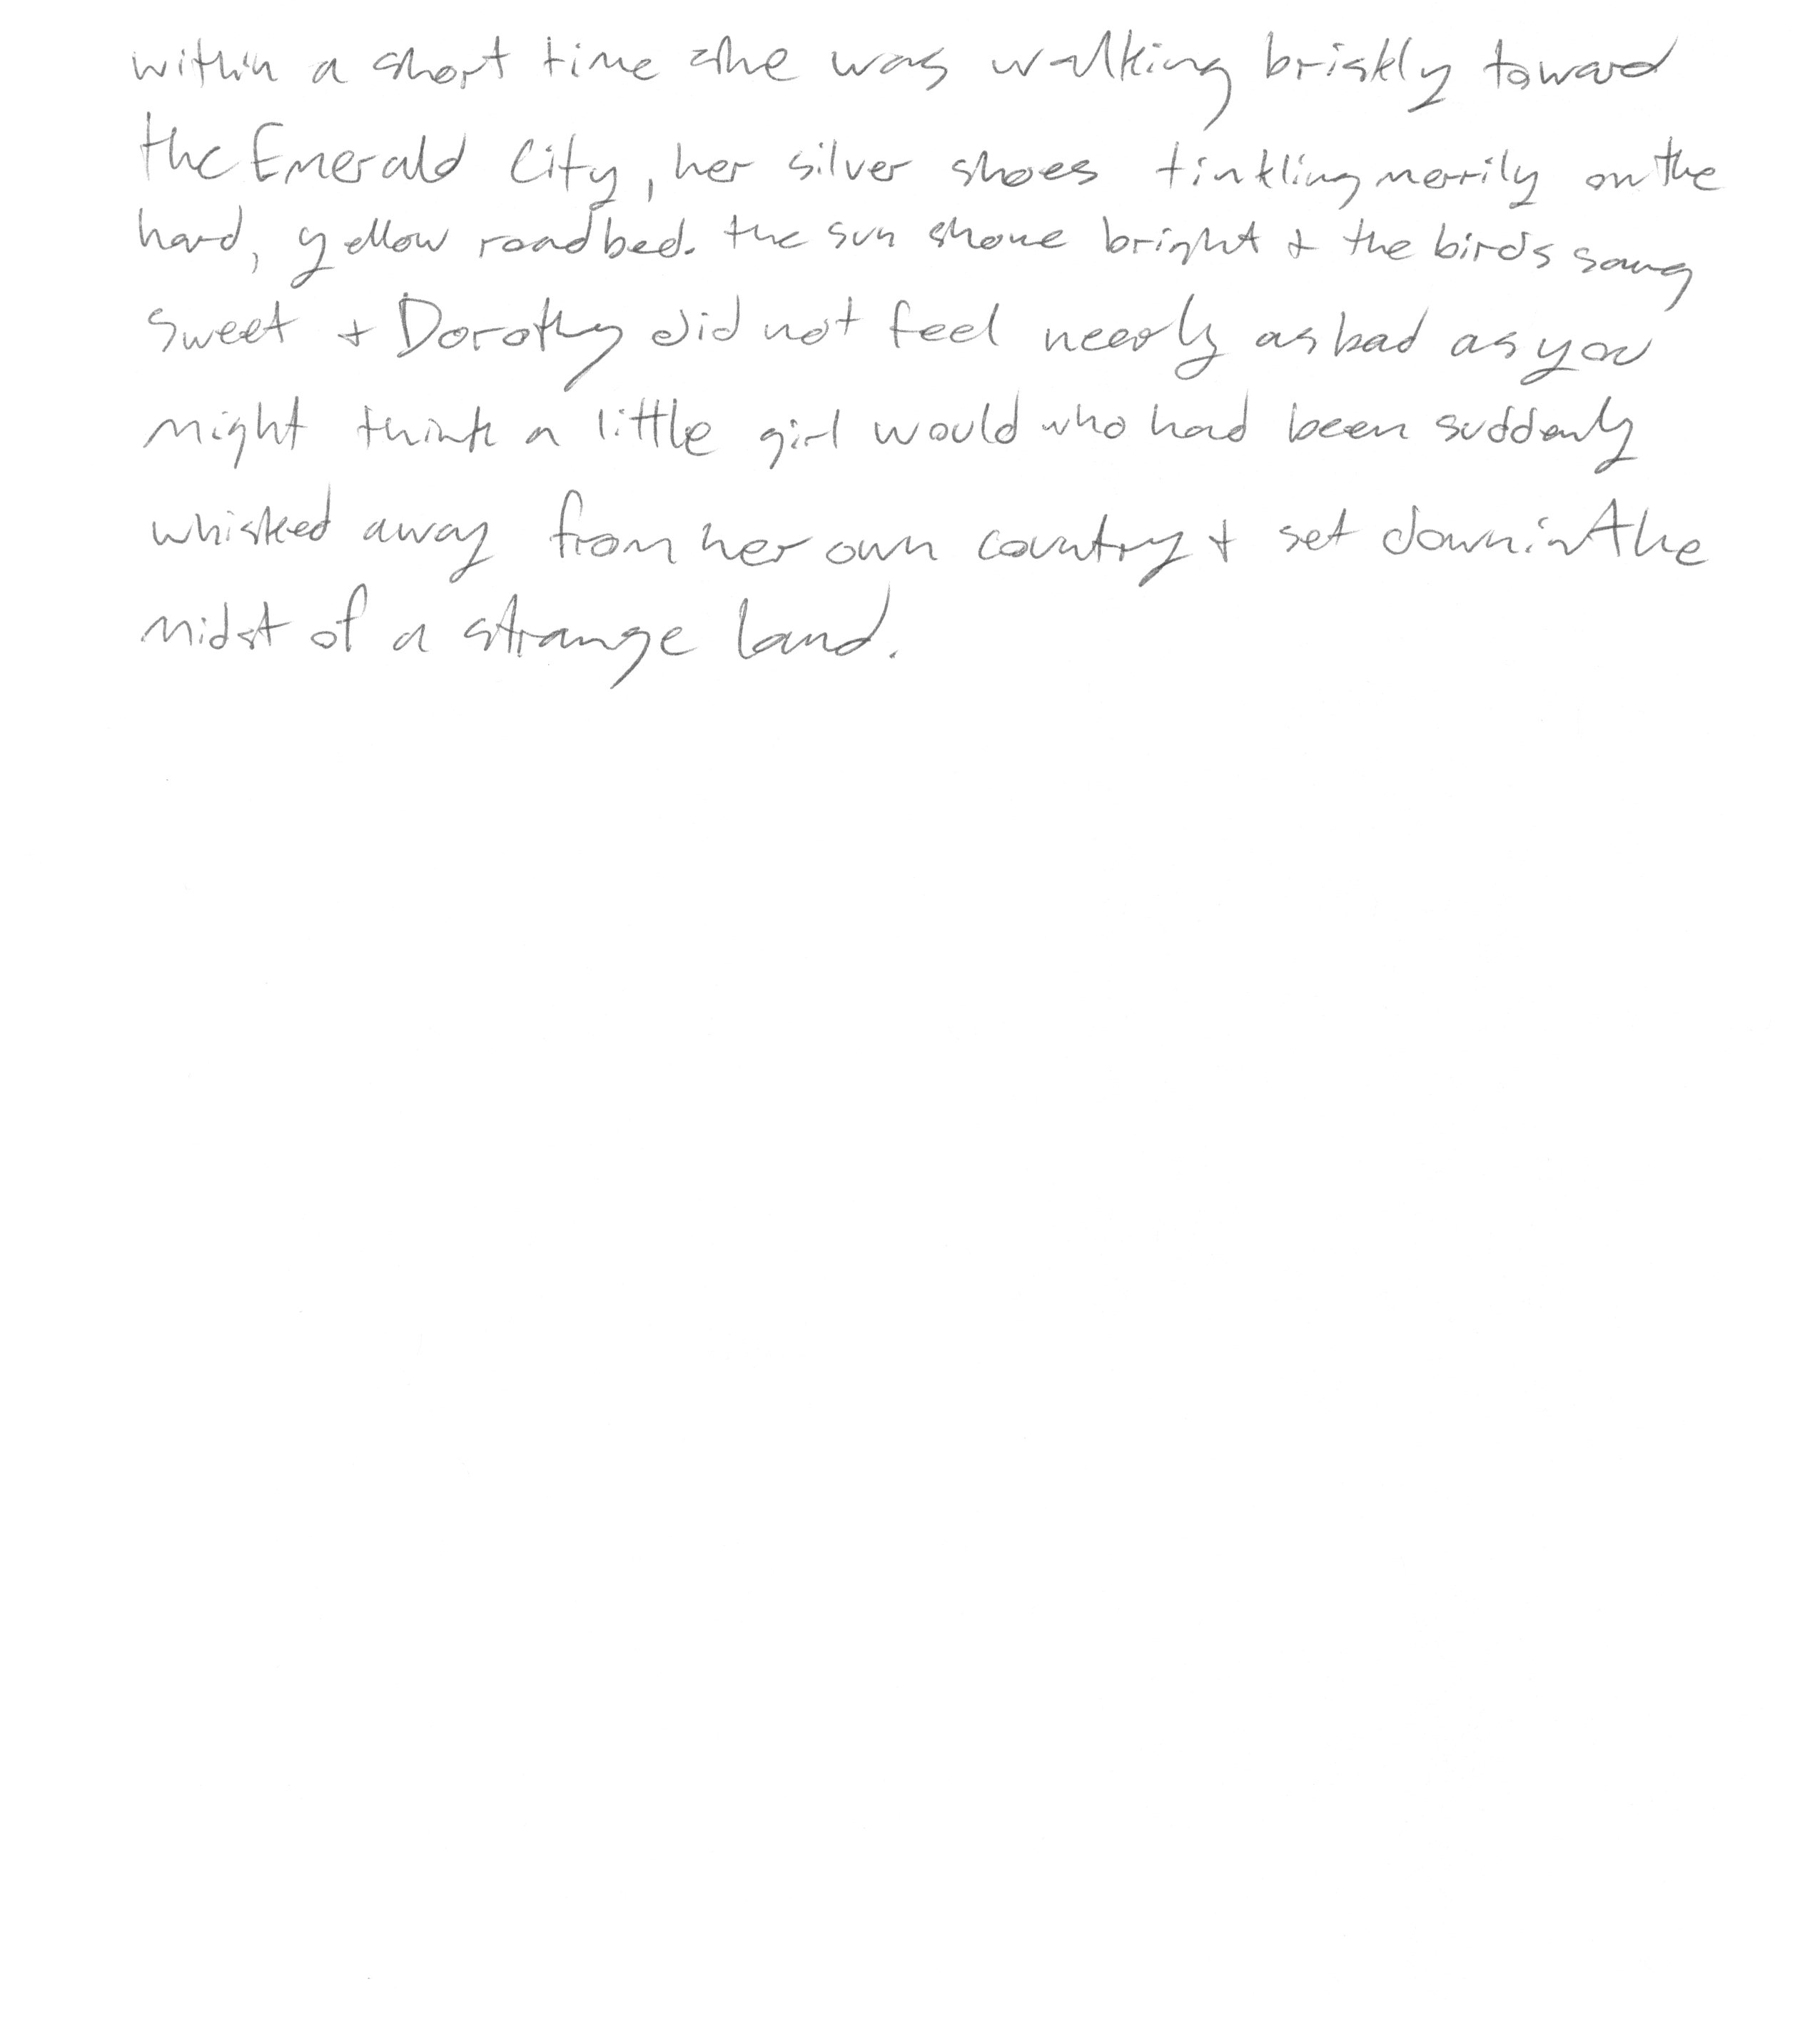 within a short time she was walking briskly toward
the Emerald City, her silver shoes tinkling merrily on the
hard, yellow roadbed. the sun shone bright + the birds sang
sweet + Dorothy did not feel nearly as bad as you
might think a little girl would who had been suddenly
whisked away from her own country + set down in the
midst of a strange land.